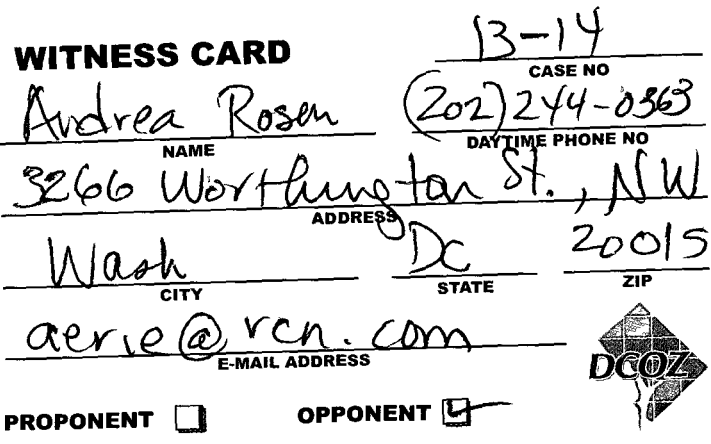 13-14
WITNESS CARD
CASE NO
Andrea Rosen (202) 244-0363
NAME DAYTIME PHONE NO
3266 Worthington St., NW
ADDRESS
Wash DC 20015
CITY STATE ZIP
aerie@rcn.com
E-MAIL ADDRESS
DCOZ
PROPONENT ☐ OPPONENT ☑